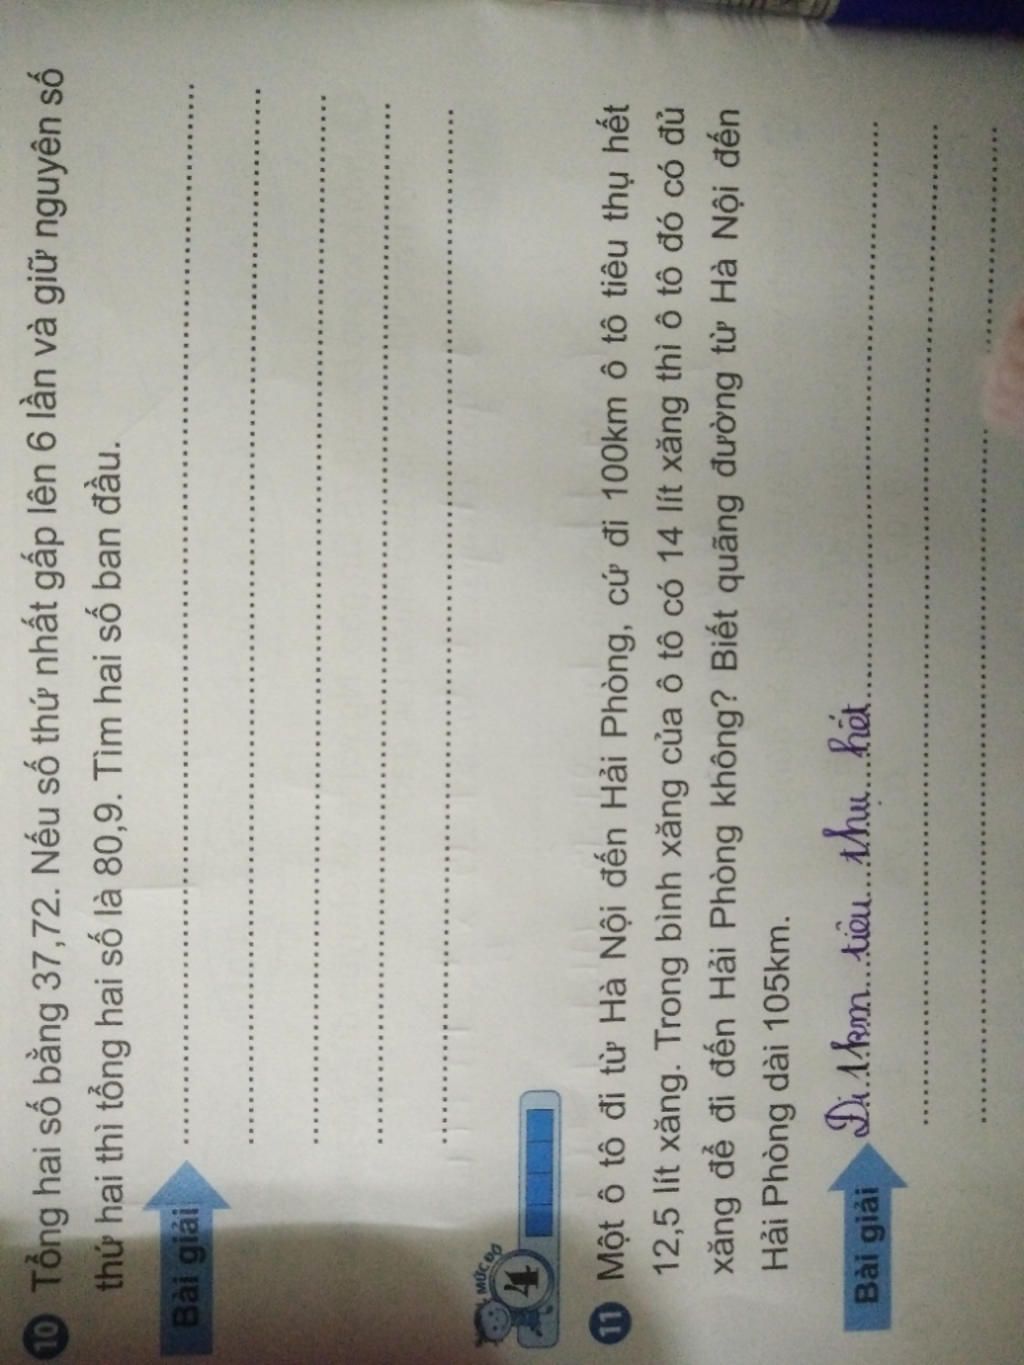 10 Tổng hai số bằng 37,72. Nếu số thứ nhất gấp lên 6 lần và giữ nguyên số
thứ hai thì tổng hai số là 80,9. Tìm hai số ban đầu.
Bài giải
MỨC ĐỘ
4
11 Một ô tô đi từ Hà Nội đến Hải Phòng, cứ đi 100km ô tô tiêu thụ hết
12,5 lít xăng. Trong bình xăng của ô tô có 14 lít xăng thì ô tô đó có đủ
xăng để đi đến Hải Phòng không? Biết quãng đường từ Hà Nội đến
Hải Phòng dài 105km.
Bài giải Đi 1km tiêu thụ hết